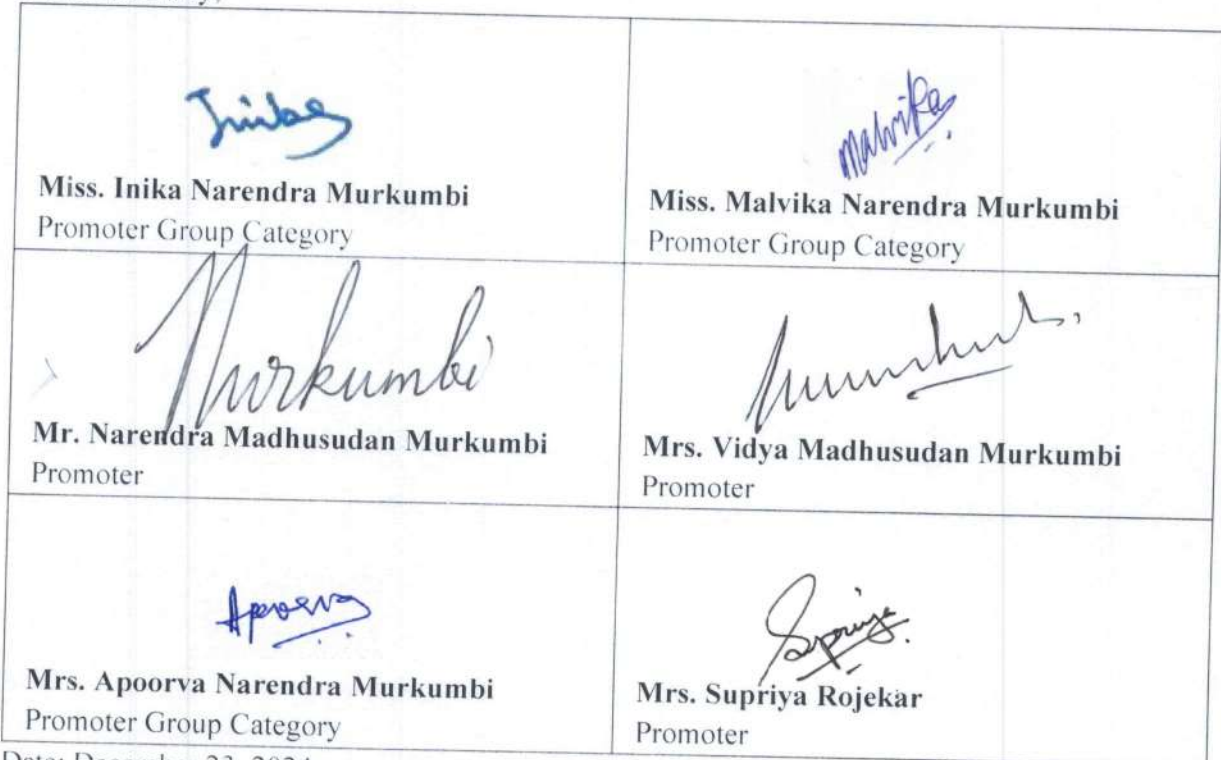 Inika
Malvika
Miss. Inika Narendra Murkumbi
Promoter Group Category
Miss. Malvika Narendra Murkumbi
Promoter Group Category
Murkumbi
Mr. Narendra Madhusudan Murkumbi
Promoter
Mrs. Vidya Madhusudan Murkumbi
Promoter
Apoorva
Supriya
Mrs. Apoorva Narendra Murkumbi
Promoter Group Category
Mrs. Supriya Rojekar
Promoter
Date: December 23, 2024